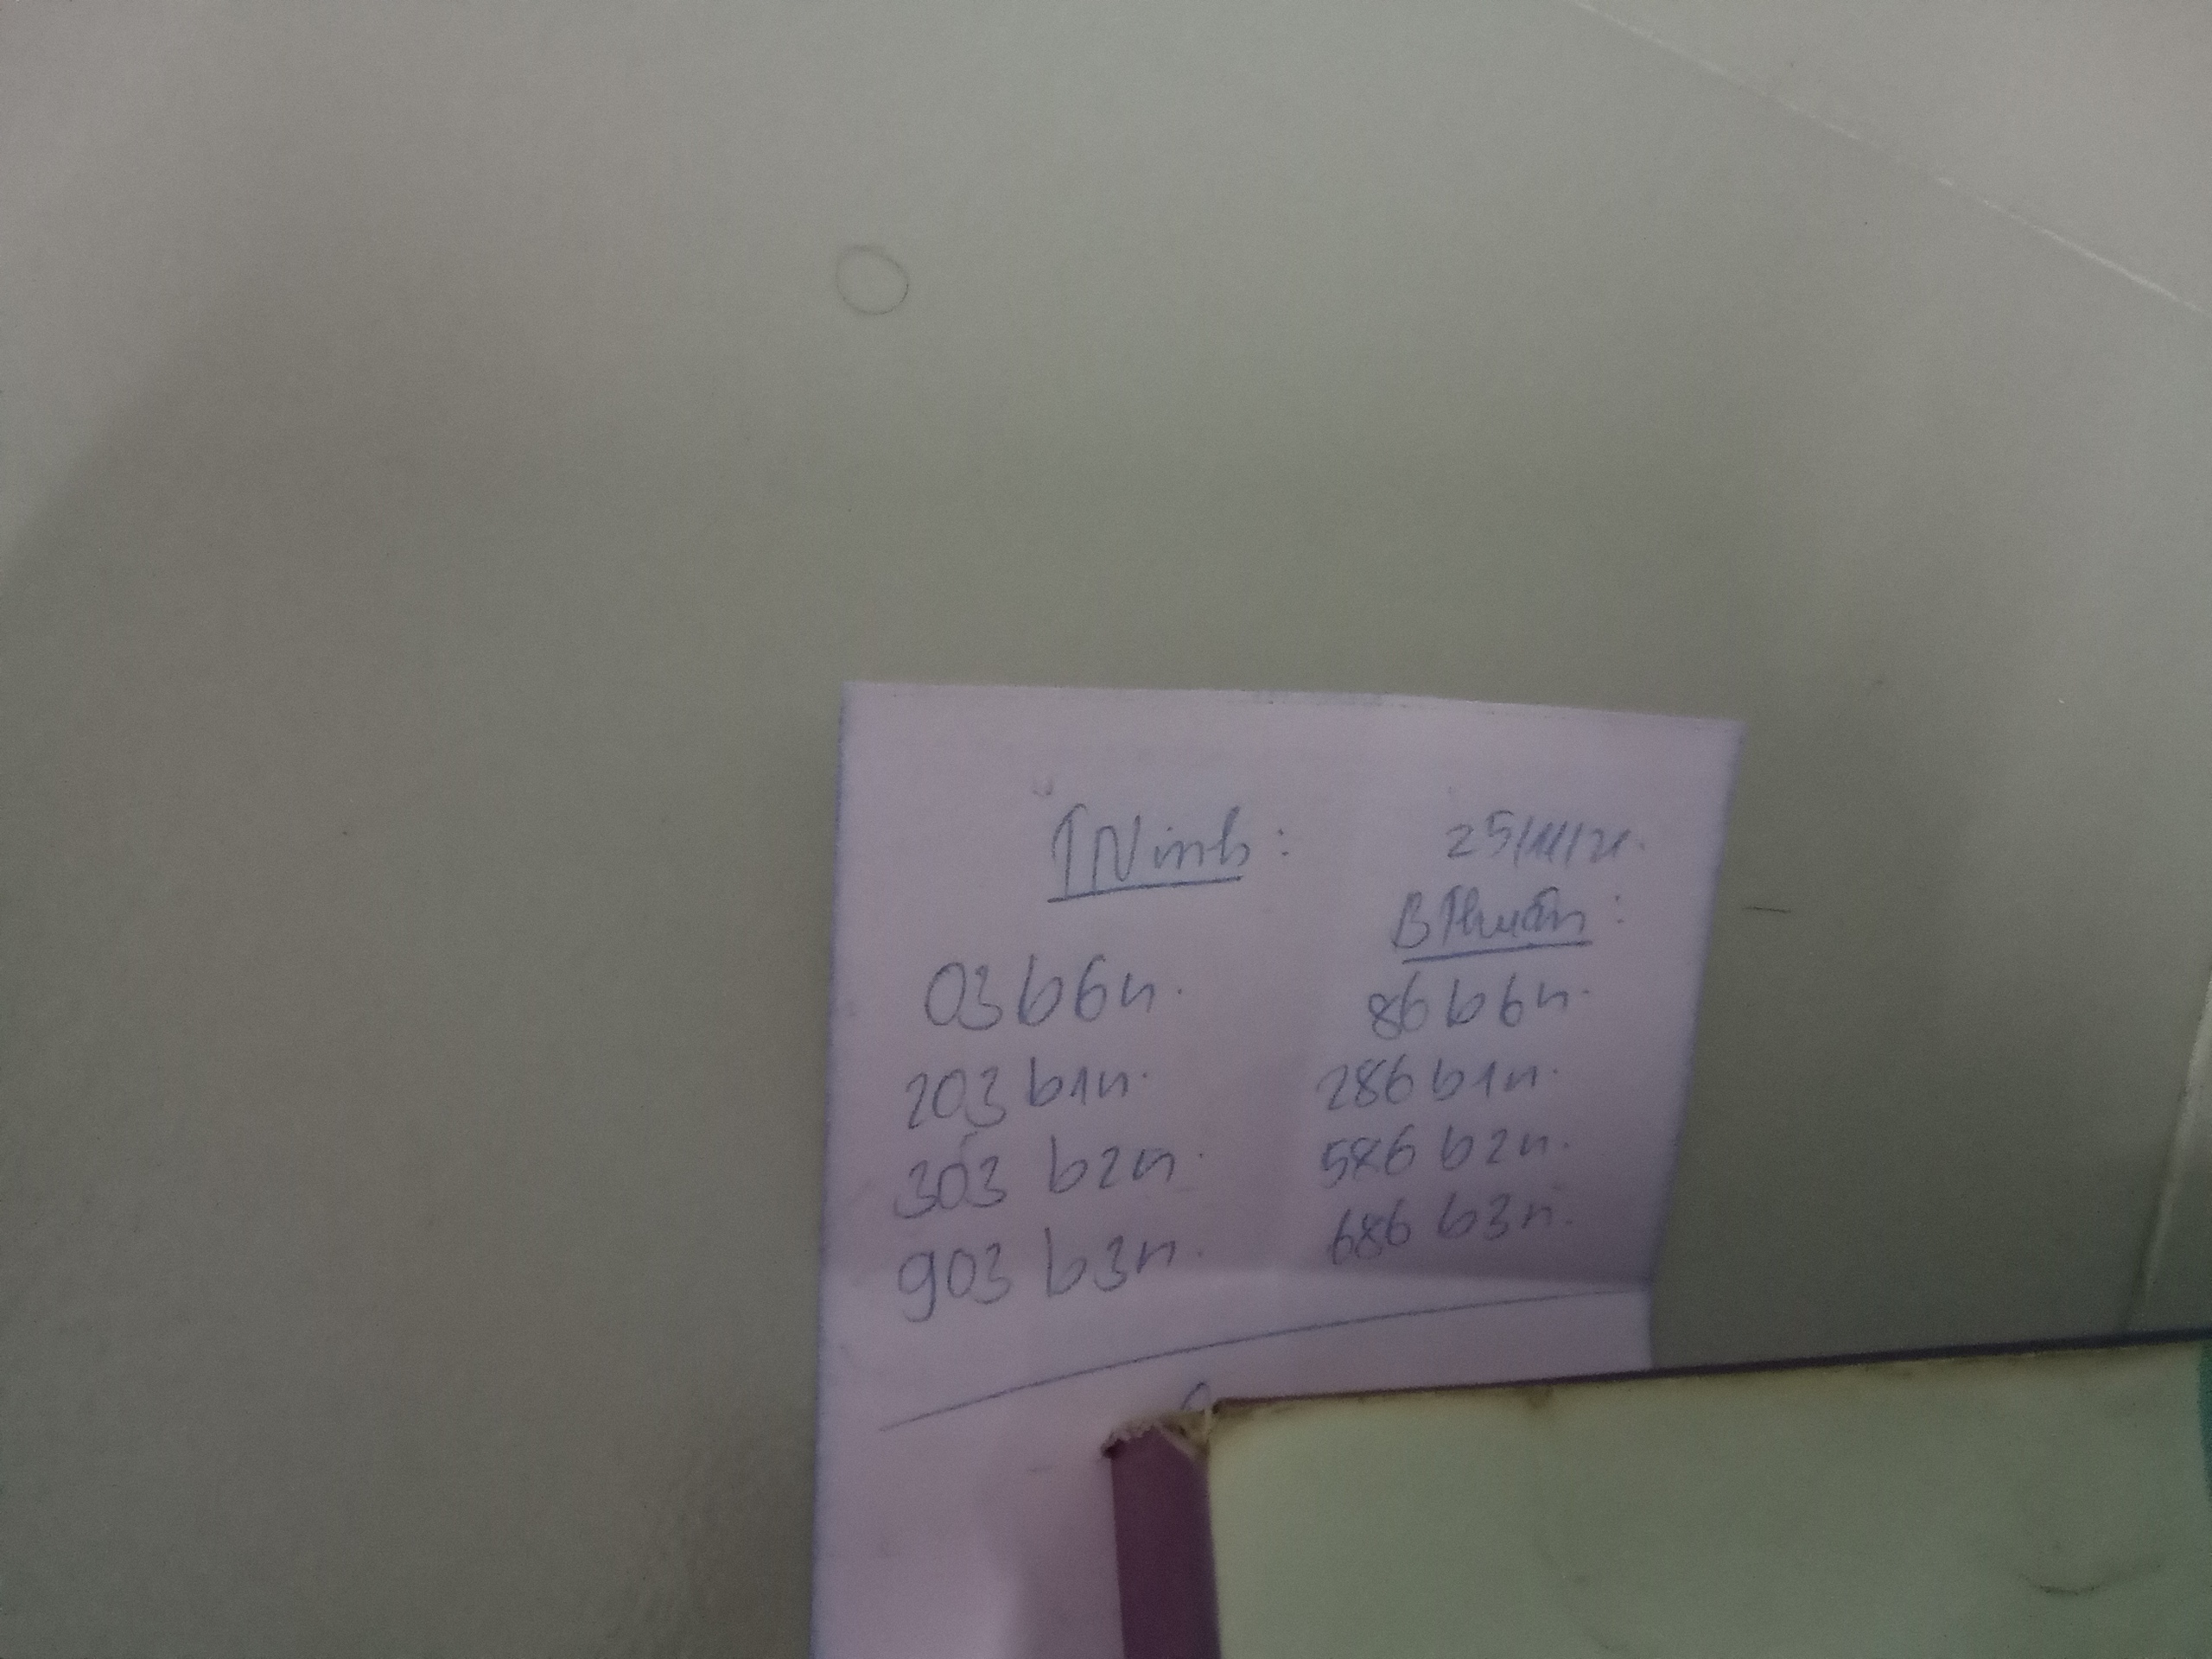 TNinh: 25/11/21.
BThuận:
03 b6n. 86 b6n.
203 b1n. 286 b1n.
303 b2n. 586 b2n.
903 b3n. 686 b3n.